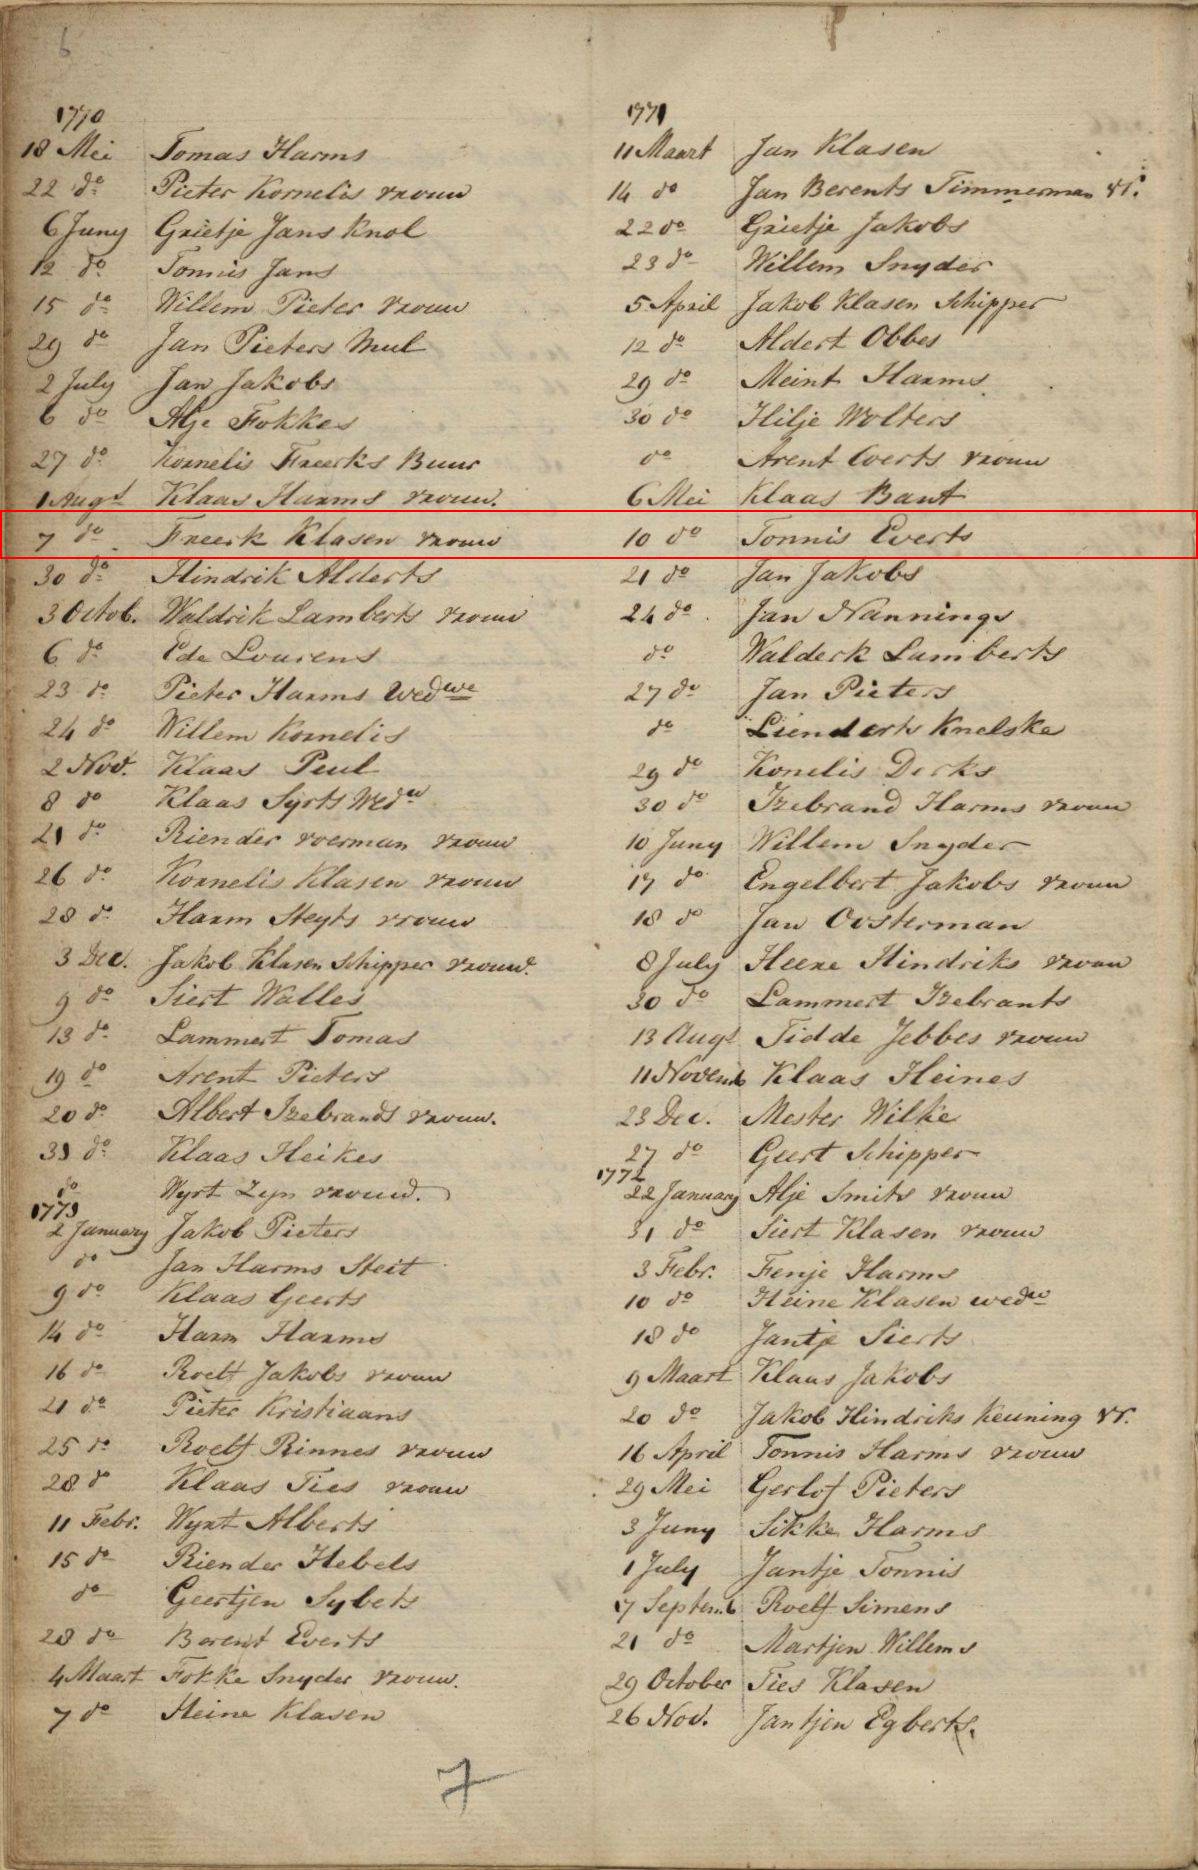 6
1770
18 Mei Tomas Harms
22 do Pieter Kornelis vrouw
6 Juny Grietje Jans Knol
12 do Tonnis Jans
15 do Willem Pieter vrouw
29 do Jan Pieters Mul
2 July Jan Jakobs
6 do Alje Fokkes
27 do Kornelis Freerks Buur
1 Augt Klaas Harms vrouw.
7 do Freerk Klasen vrouw
30 do Hindrik Alderts
3 Octob. Waldrik Lamberts vrouw
6 do Ede Lourens
23 do Pieter Harms Wedwe
24 do Willem Kornelis
2 Nov. Klaas Peul
8 do Klaas Syrts Wedw
21 do Riender voerman vrouw
26 do Kornelis Klasen vrouw
28 do Harm Steyts vrouw
3 Dec. Jakob Klasen Schipper vrouw.
9 do Siert Walles
13 do Lammert Tomas
19 do Arent Pieters
20 do Albert Izebrands vrouw.
31 do Klaas Heikes
do Wyrt Zyn vrouw.
1771
2 January Jakob Pieters
do Jan Harms Steit
9 do Klaas Geerts
14 do Harm Harms
16 do Roelf Jakobs vrouw
21 do Pieter Kristiaans
25 do Roelf Rinnes vrouw
28 do Klaas Ties vrouw
11 Febr. Wyrt Alberts
15 do Riender Hebels
do Geertjen Sybets
28 do Berent Everts
4 Maart Fokke Snyder vrouw.
7 do Heine Klasen
1771
11 Maart Jan Klasen
14 do Jan Berents Timmerman vr.
22 do Grietje Jakobs
23 do Willem Snyder
5 April Jakob Klasen Schipper
12 do Aldert Obbes
29 do Meint Harms
30 do Hilje Wolters
do Arent Everts vrouw
6 Mei Klaas Bant
10 do Tonnis Everts
21 do Jan Jakobs
24 do Jan Nannings
do Walderk Lamberts
27 do Jan Pieters
do Lienderts Knelske
29 do Konelis Derks
30 do Izebrand Harms vrouw
10 Juny Willem Snyder
17 do Engelbert Jakobs vrouw
18 do Jan Oosterman
8 July Heere Hindriks vrouw
30 do Lammert Izebrants
13 Augt Tidde Jebbes vrouw
11 Novemb Klaas Heines
23 Dec. Mester Wilke
27 do Geert Schipper
1772
22 January Alje Smits vrouw
31 do Siert Klasen vrouw
3 Febr. Fenje Harms
10 do Heine Klasen wedw
18 do Jantje Sierts
9 Maart Klaas Jakobs
20 do Jakob Hindriks Keuning vr.
16 April Tonnis Harms vrouw
29 Mei Gerlof Pieters
3 Juny Sikke Harms
1 July Jantje Tonnis
17 Septemb Roelf Simens
21 do Martjen Willems
29 October Ties Klasen
26 Nov. Jantjen Egberts.
7